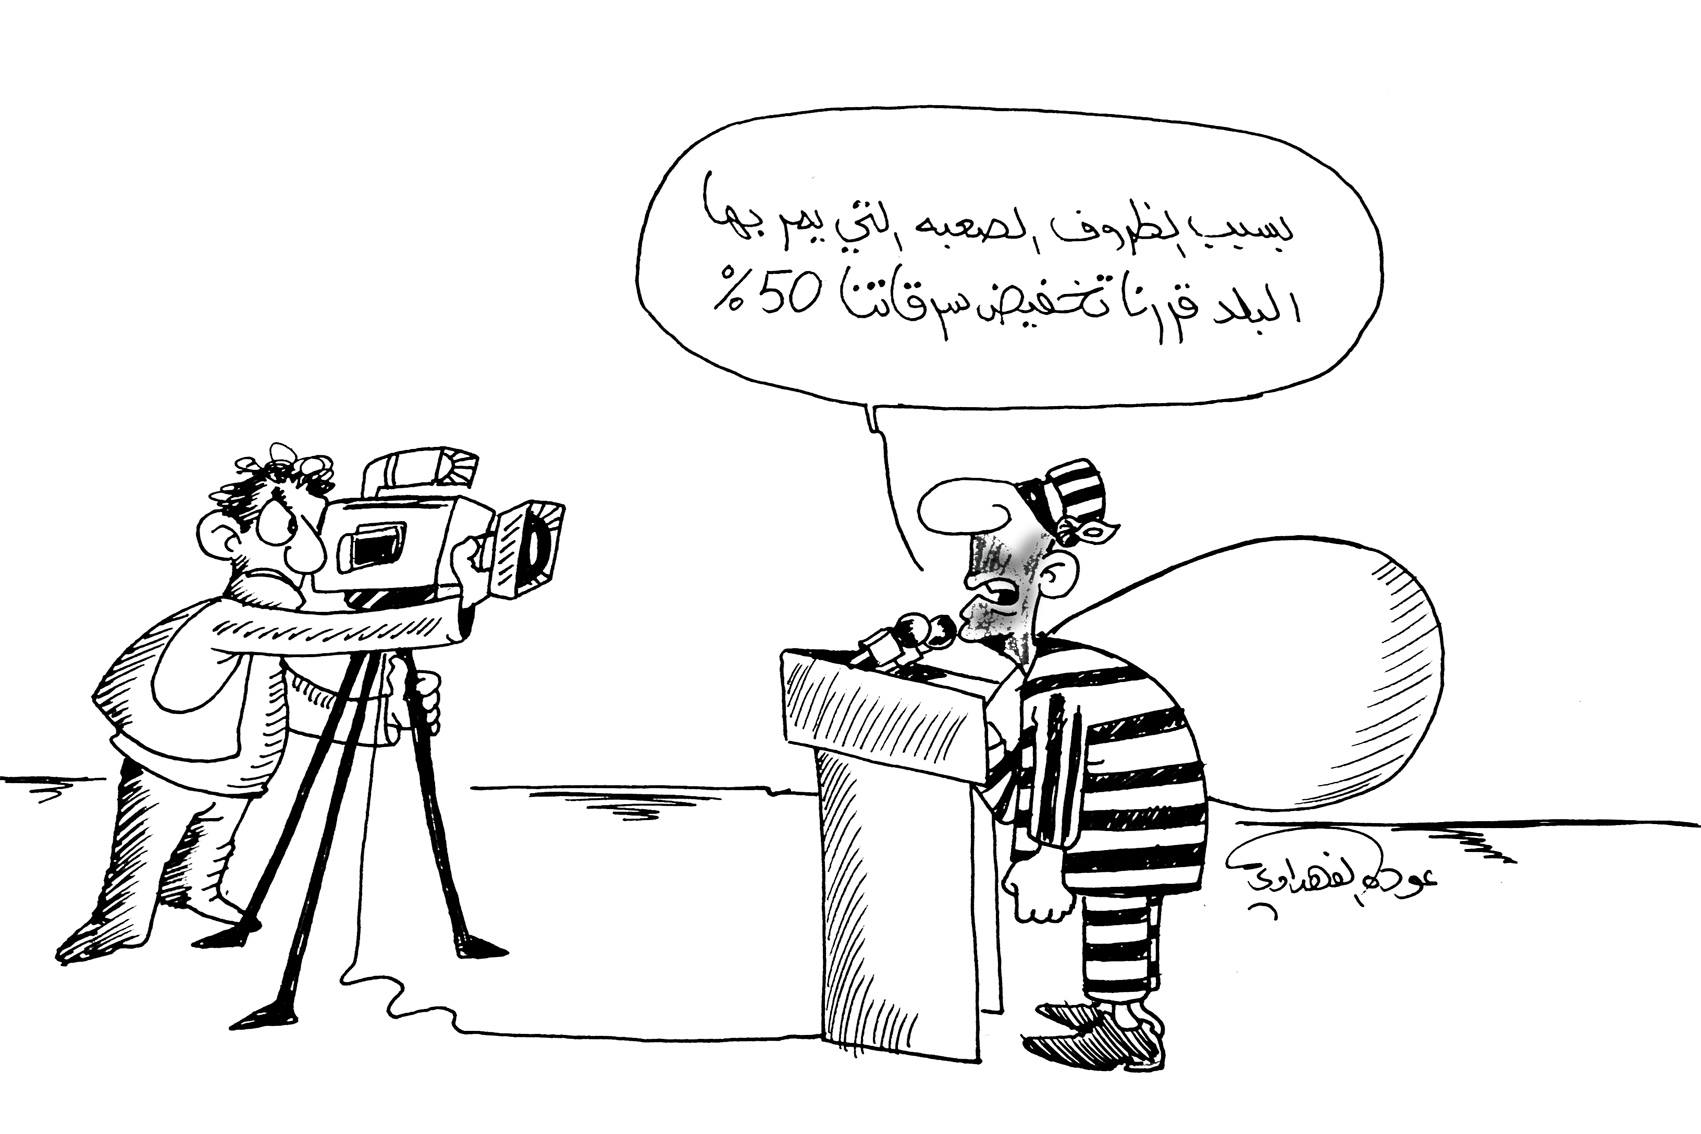 بسبب الظروف الصعبه التي يمر بها
البلد قررنا تخفيض سرقاتنا 50%
عوده الفهداوي